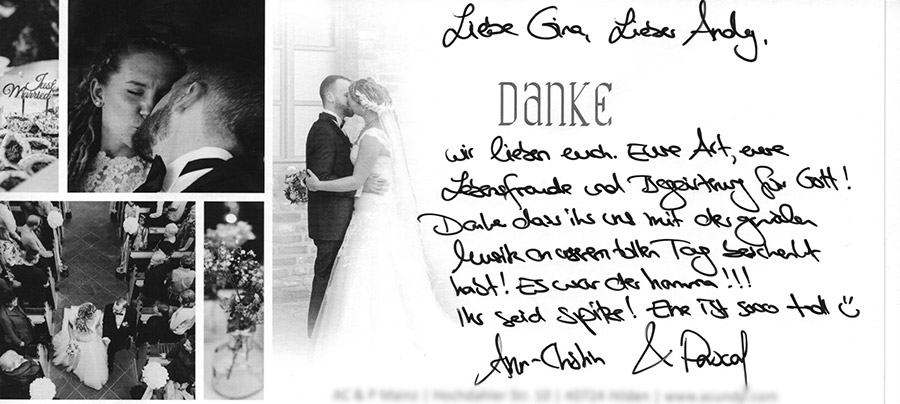 Just
Married
Liebe Gina, Lieber Andy,
DANKE
wir lieben euch. Eure Art, eure
Lebensfreude und Begeisterung für Gott!
Danke dass ihr uns mit der genialen
Musik an unserem tollen Tag beschenkt
habt! Es war der hamma!!!
Ihr seid spitze! Ehe ist sooo toll
Ann-Christin & Pascal